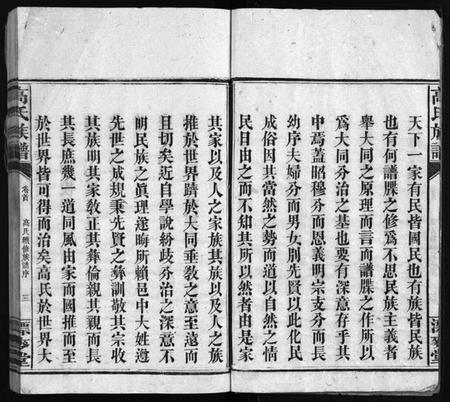 高氏族譜
天下一家有民皆國民也有族皆民族
也有何譜牒之修為不思民族主義者
舉大同之原理而言而譜牒之作所以
為大同分治之基也要有深意存乎其
中焉蓋昭穆分而恩義明宗支分而長
幼序夫婦分而男女別先賢以此化民
成俗因其當然之勢而道以自然之情
民日由之而不知其所以然者由是家
其家以及人之家族其族以及人之族
推於世界躋於大同垂敎之意至遠而
且切矣近自學說紛歧分治之深意不
明民族之眞理遂晦所賴邑中大姓遵
先世之成規秉先賢之彝訓敬其宗收
其族明其家敎正其彝倫親其親而長
其長庶幾一道同風由家而國推而至
於世界皆可得而治矣高氏於世界大
高氏族譜
卷首
高氏續修族譜序
三